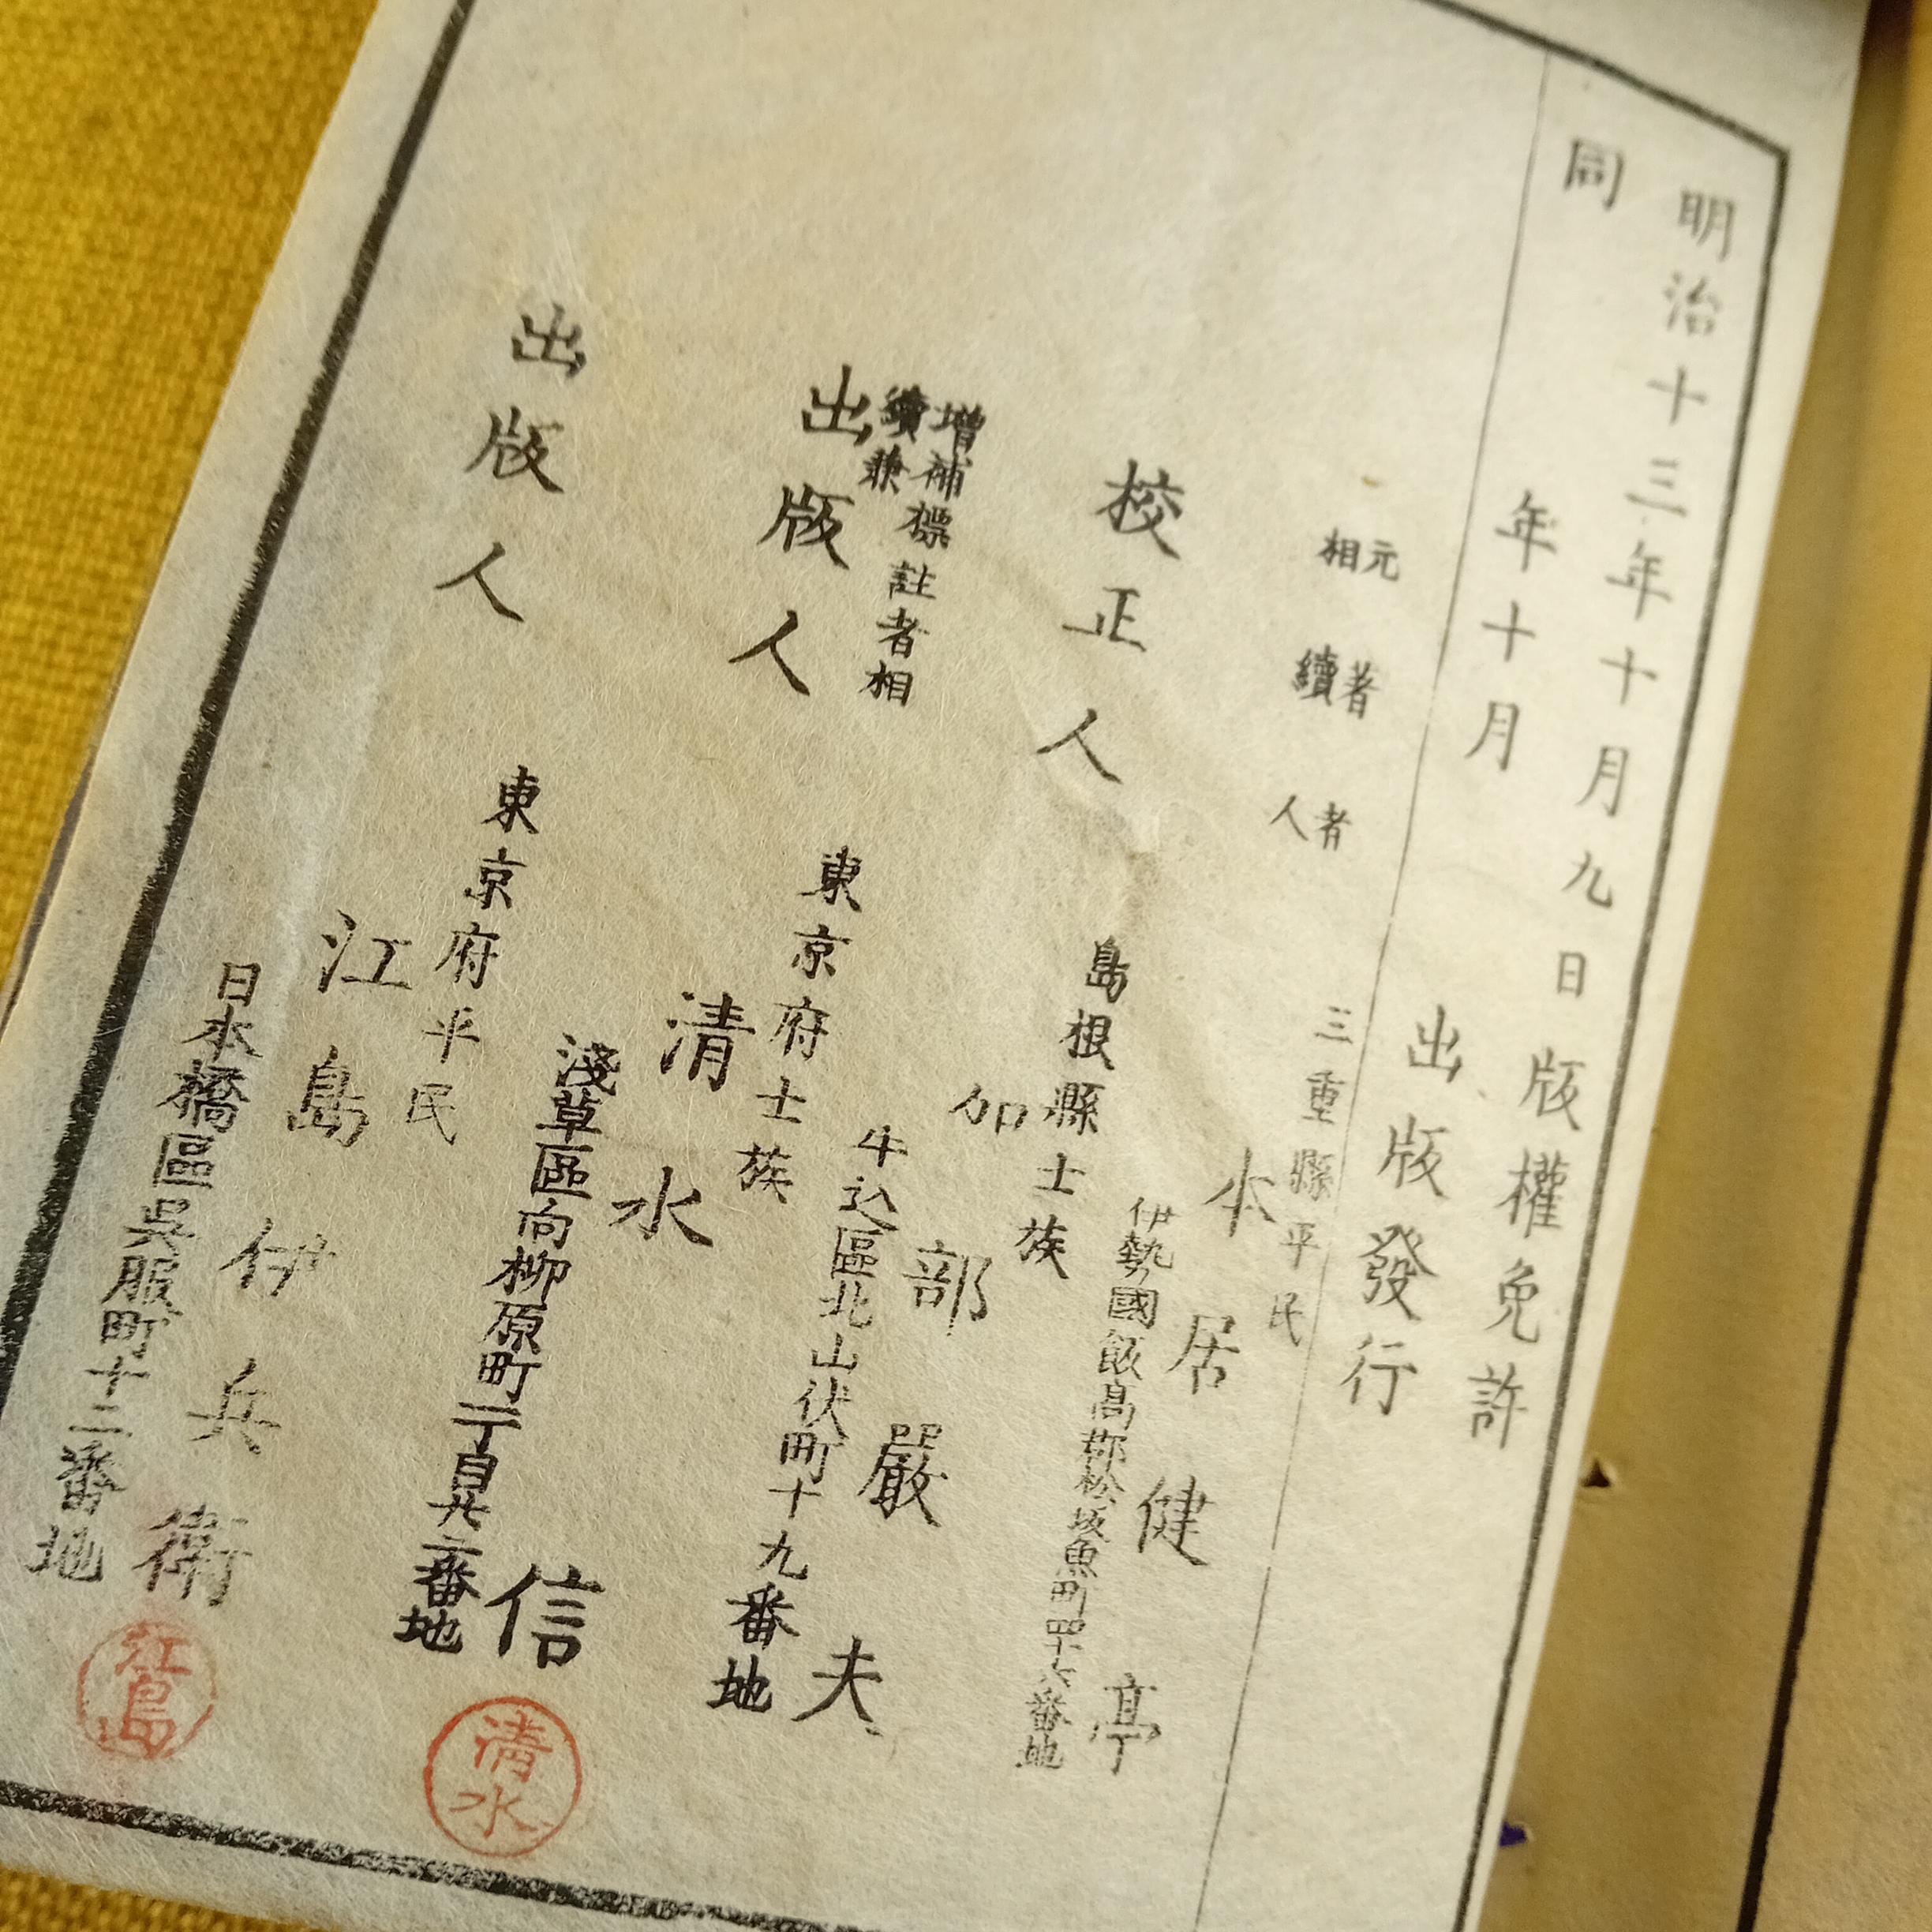 明治十三年十月九日版權免許
同年十月出版發行
元著者
相續人
三重縣平民
本居健亭
伊勢國飯高郡松坂魚町四十六番地
校正人
島根縣士族
加部嚴夫
牛込區北山伏町十九番地
增補標註者相
續兼
出版人
東京府士族
清水信
淺草區向柳原町二丁目廿二番地
清水
出版人
東京府平民
江島伊兵衛
日本橋區吳服町十二番地
江島